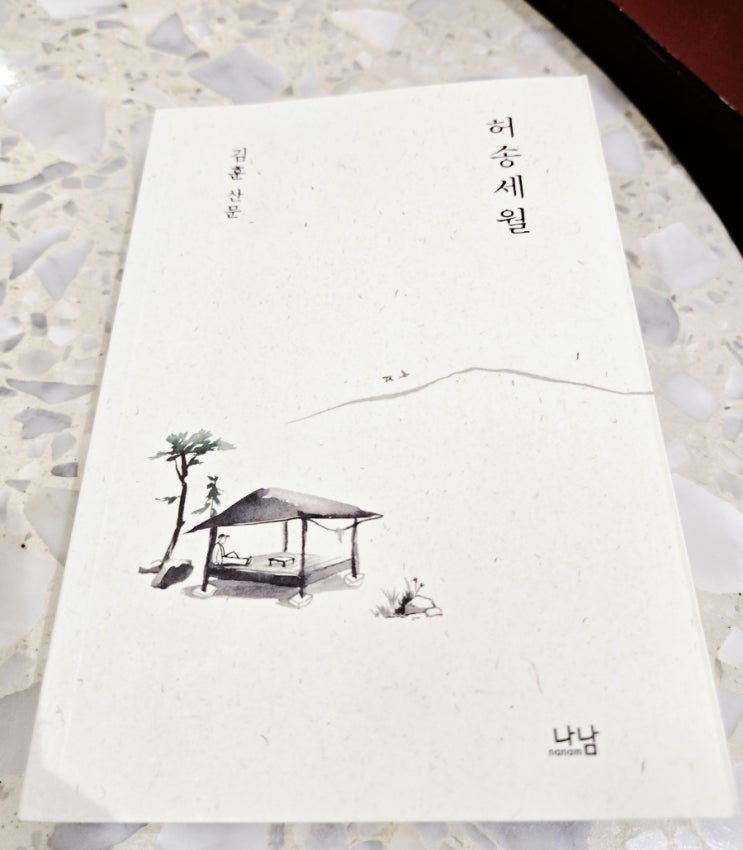 허송세월
김훈 산문
나남
nanam